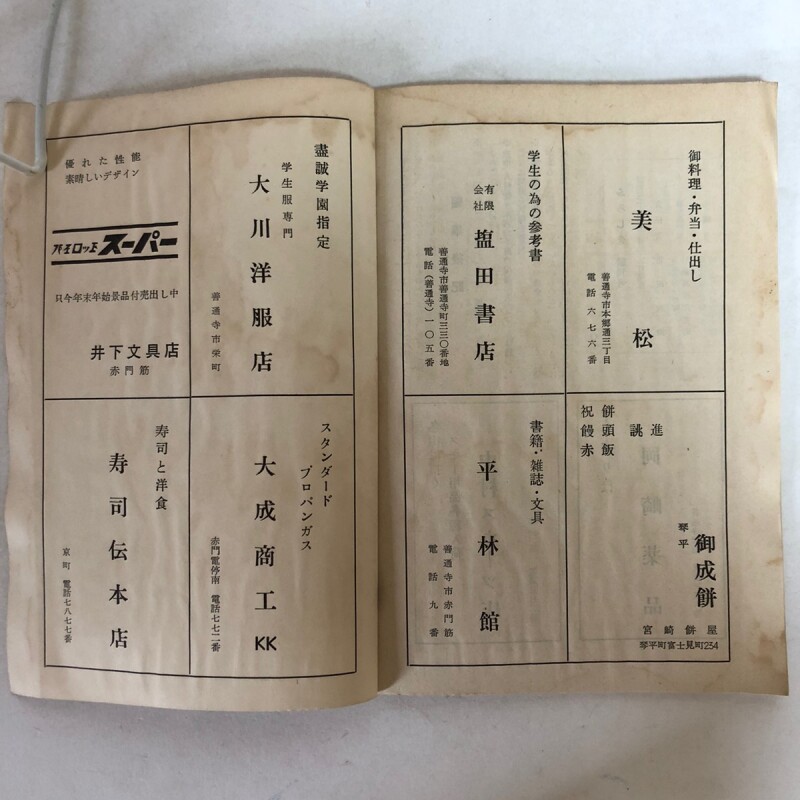 御料理・弁当・仕出し
美松
善通寺市本郷通三丁目
電話六七六番
学生の為の参考書
有限会社
塩田書店
善通寺市善通寺町三三〇番地
電話(善通寺)一〇五番
進
誂
餅頭飯
祝饅赤
琴平
御成餅
宮崎餅屋
琴平町富士見町234
書籍・雑誌・文具
平林館
善通寺市赤門筋
電話九番
盡誠学園指定
学生服専門
大川洋服店
善通寺市栄町
優れた性能
素晴しいデザイン
パイロット スーパー
只今年末年始景品付売出し中
井下文具店
赤門筋
スタンダード
プロパンガス
大成商工KK
赤門電停南 電話七七二番
寿司と洋食
寿司伝本店
京町 電話七八七番